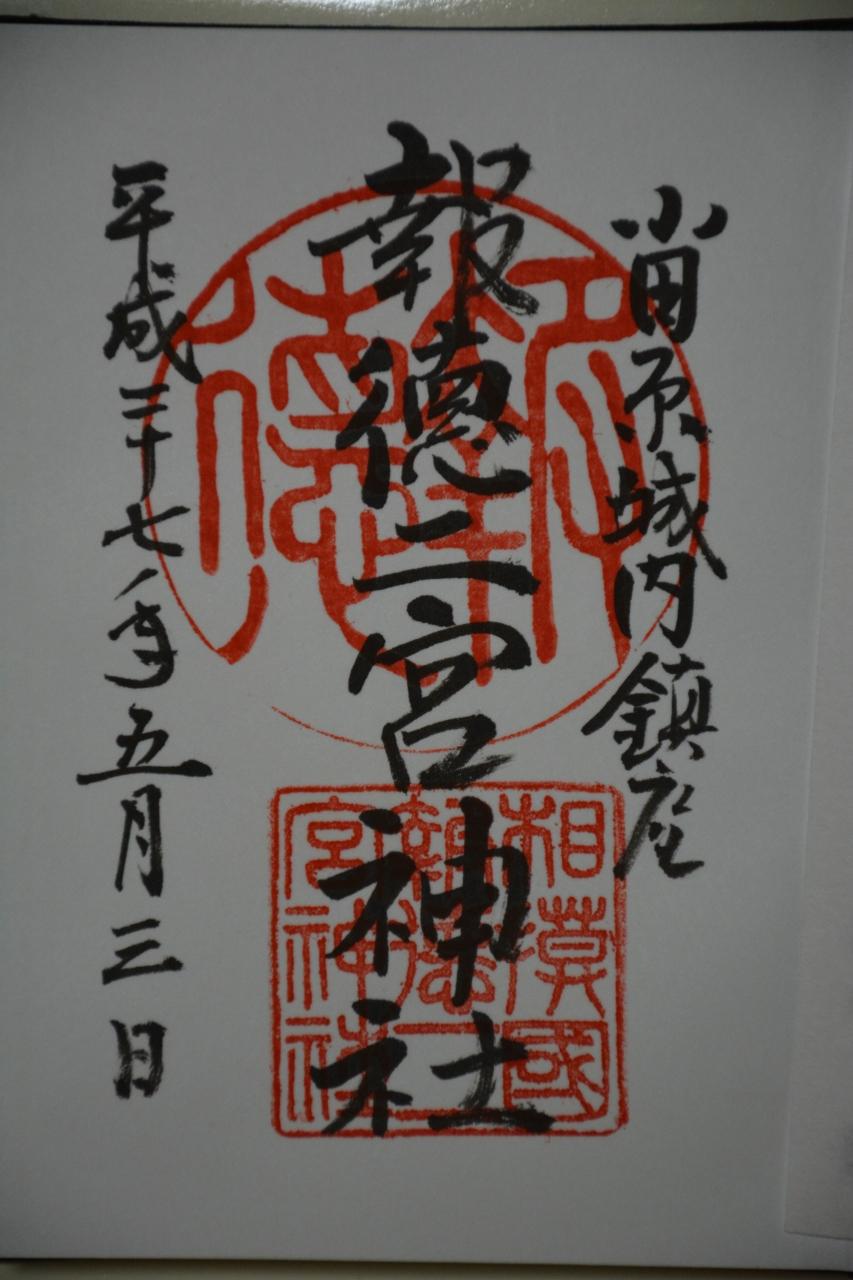 小田原城内鎮座
報徳二宮神社
平成二十七年五月三日
報徳
相模國
報徳二
宮神社